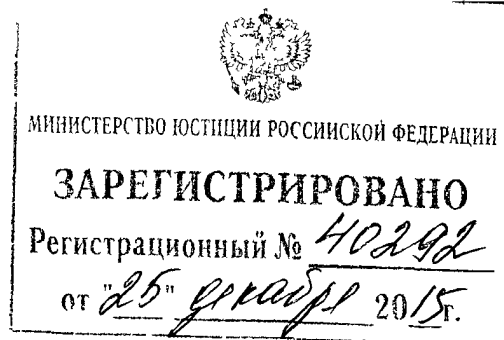 МИНИСТЕРСТВО ЮСТИЦИИ РОССИЙСКОЙ ФЕДЕРАЦИИ
ЗАРЕГИСТРИРОВАНО
Регистрационный № 40292
от "25" декабря 2015г.